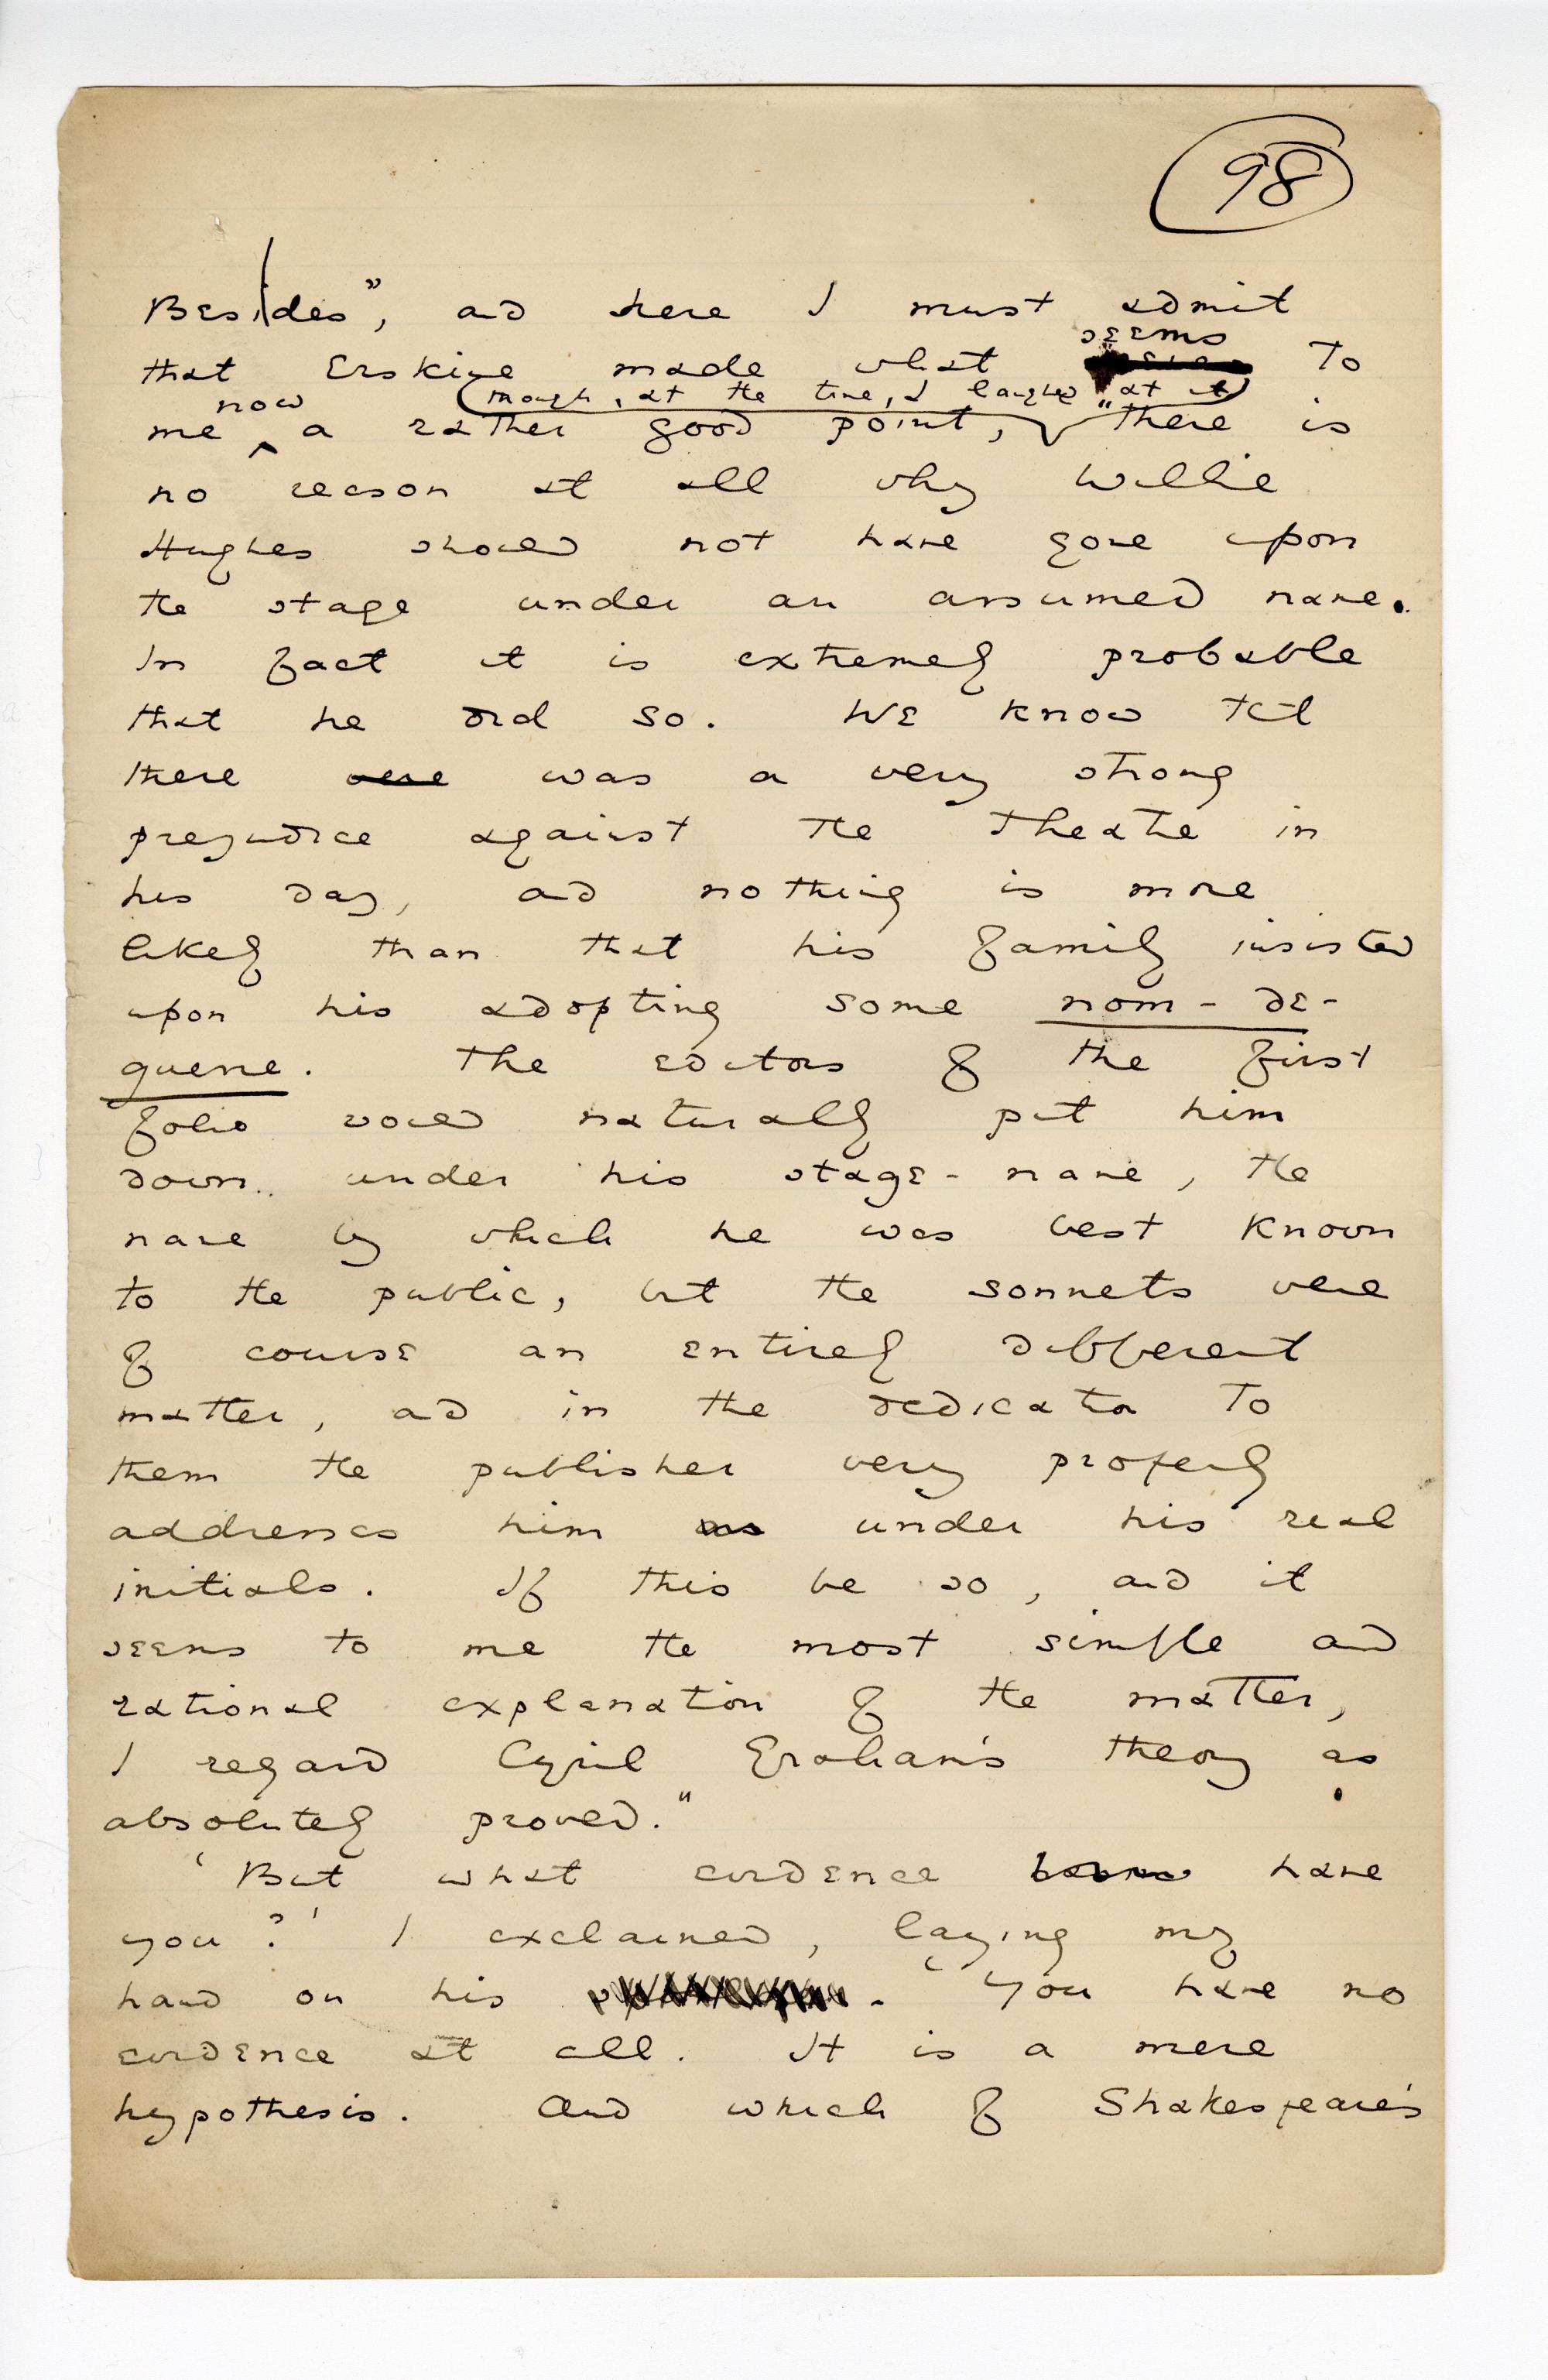 98
Besides", and here I must admit
seems
that Erskine made what to
now (though, at the time, I laughed at it)
me a rather good point, "there is
no reason at all why Willie
Hughes should not have gone upon
the stage under an assumed name.
In fact it is extremely probable
that he did so. We know that
there were was a very strong
prejudice against the theatre in
his day, and nothing is more
likely than that his family insisted
upon his adopting some nom-de-
guerre. The editors of the first
folio would naturally put him
down under his stage-name, the
name by which he was best known
to the public, but the sonnets were
of course an entirely different
matter, and in the dedication to
them the publisher very properly
addresses him as under his real
initials. If this be so, and it
seems to me the most simple and
rational explanation of the matter,
I regard Cyril Graham's theory as
absolutely proved."
'But what evidence have
you?' I exclaimed, laying my
hand on his . 'You have no
evidence at all. It is a mere
hypothesis. And which of Shakespeare's